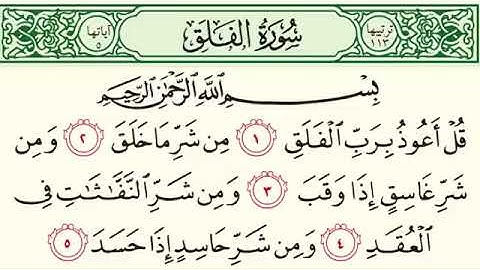 ترتيبها ١١٣ سُورَةُ الفَلَقِ آياتها ٥
بِسْمِ اللَّهِ الرَّحْمَٰنِ الرَّحِيمِ
قُلْ أَعُوذُ بِرَبِّ الْفَلَقِ ١ مِن شَرِّ مَا خَلَقَ ٢ وَمِن
شَرِّ غَاسِقٍ إِذَا وَقَبَ ٣ وَمِن شَرِّ النَّفَّاثَاتِ فِي
الْعُقَدِ ٤ وَمِن شَرِّ حَاسِدٍ إِذَا حَسَدَ ٥